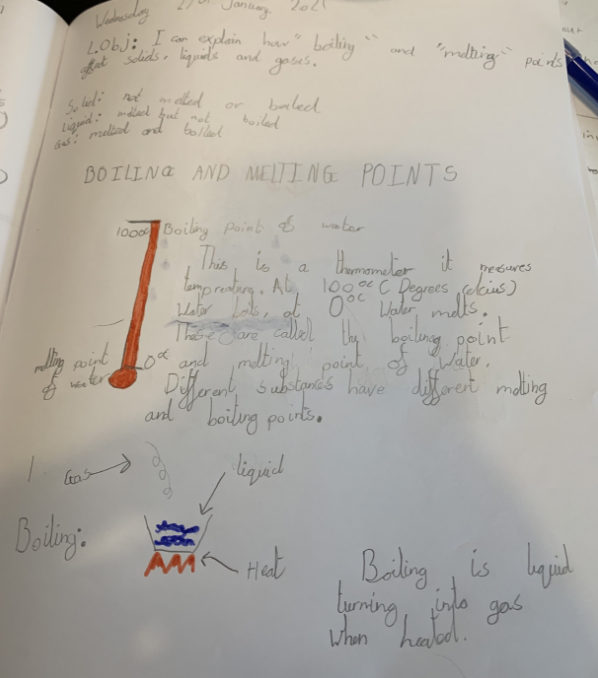 Wednesday 27th January 2021
L.Obj: I can explain how "boiling" and "melting" points
effect solids, liquids and gases.
Solid: not melted or boiled
Liquid: melted but not boiled
Gas: melted and boiled
BOILING AND MELTING POINTS
100°C Boiling point of water
This is a thermometer it mesures
temprenting. At 100°C (Degrees celcius)
Water boils, at 0°C Water melts.
These are called the boiling point
melting point 0°C and melting point of Water.
of water
Different substances have different melting
and boiling points.
1. Gas
liquid
Boiling:
Heat
Boiling is liquid
turning into gas
when heated.